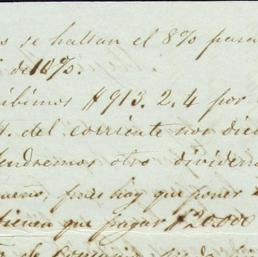 se hallan el 8% para
de 18%.
ibimos $913. 2. 4 por
del corriente nos die
tendremos otro dividen
pues hay que poner
tienen que pagar $20.000